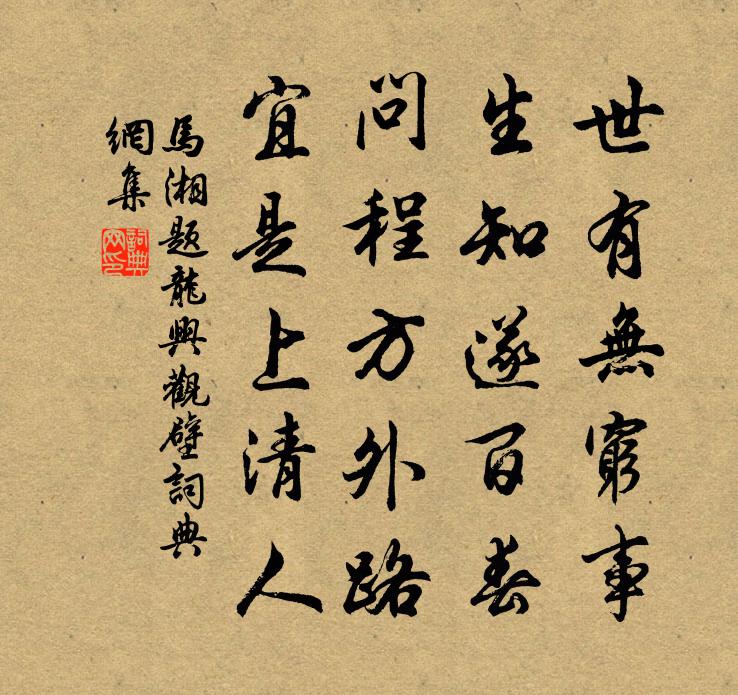 世有無窮事
生知遂百春
問程方外路
宜是上清人
馬湘題龍興觀壁詞典
網集
詞典
网印